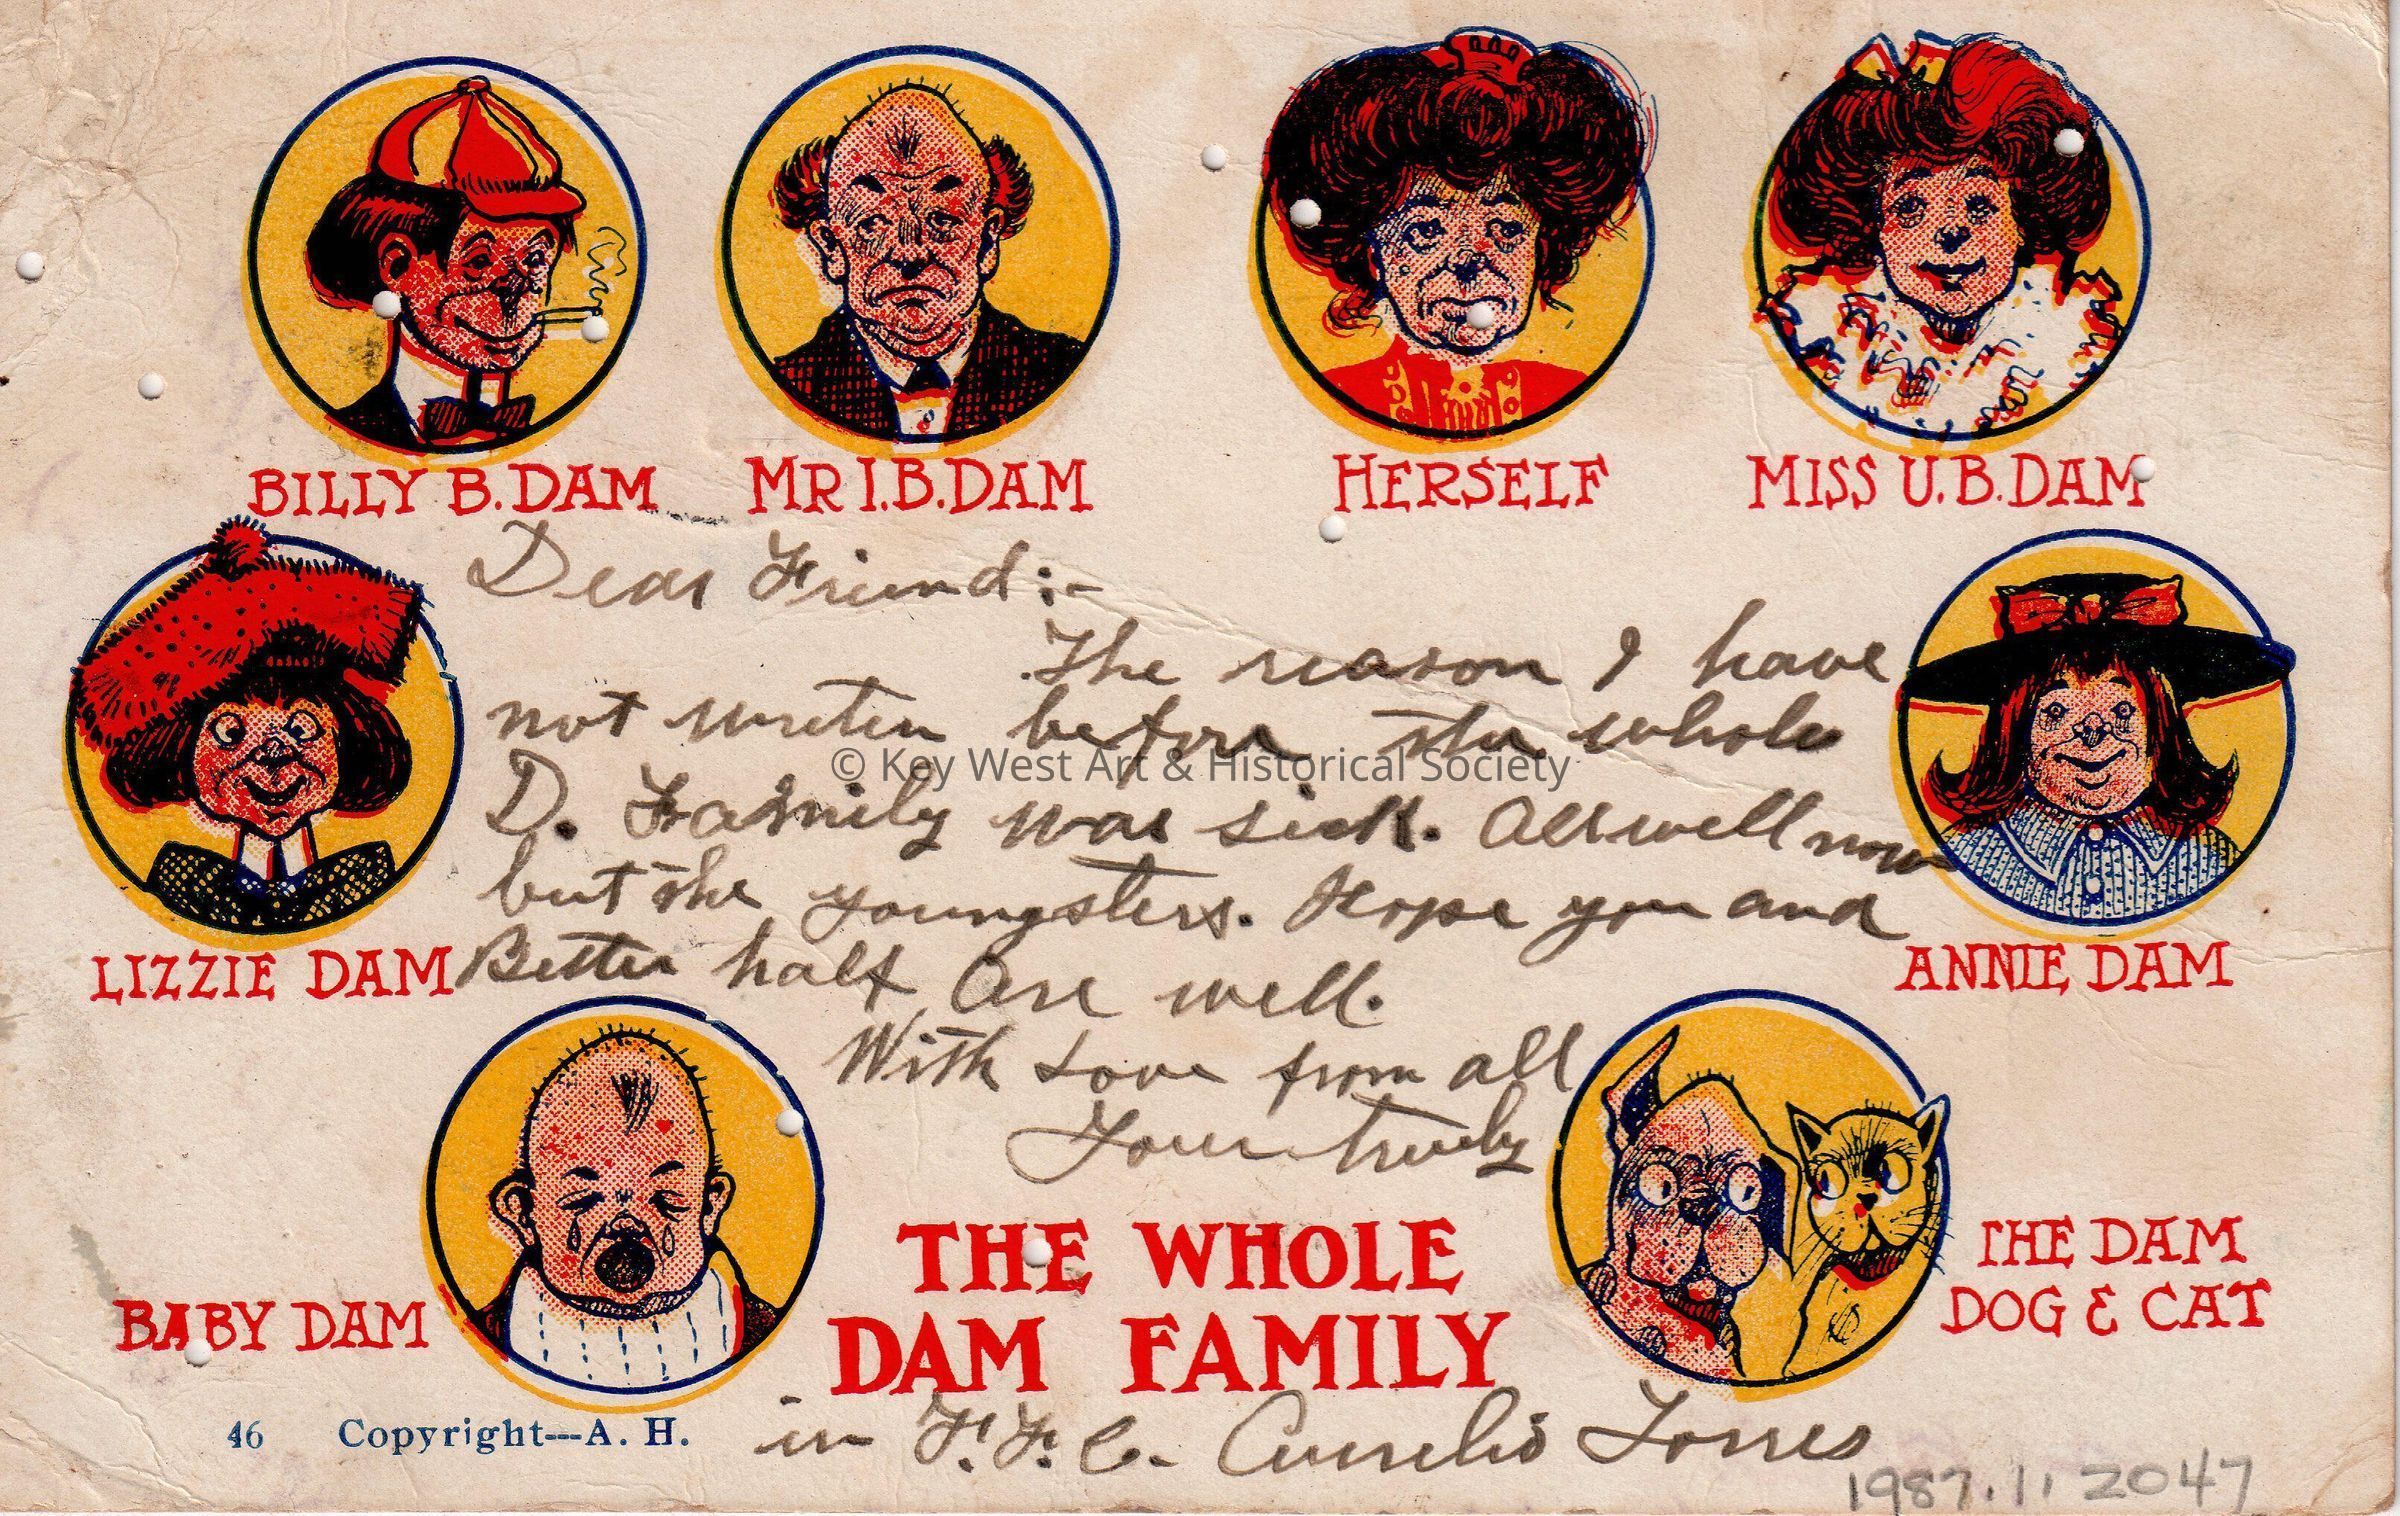 BILLY B. DAM MR I. B. DAM HERSELF MISS U. B. DAM
Dear Friend:-
The reason I have
not writen before the whole
© Key West Art & Historical Society
D. Family was sick. All well now
but the youngsters. Hope you and
Better half are well.
With Love from all
Your truely
LIZZIE DAM
ANNIE DAM
BABY DAM
THE DAM
DOG & CAT
THE WHOLE
DAM FAMILY
46 Copyright---A. H.
in F. F. C. Aurelio Torres
1987.11.2047